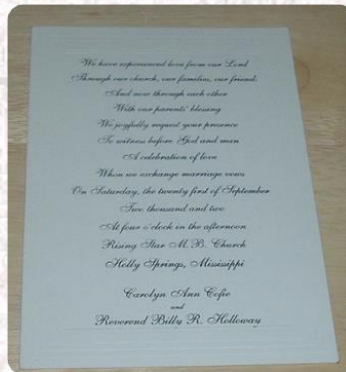 We have experienced love from our Lord
Through our church, our families, our friends
And now through each other
With our parents' blessing
We joyfully request your presence
To witness before God and man
A celebration of love
When we exchange marriage vows
On Saturday, the twenty first of September
Two thousand and two
At four o'clock in the afternoon
Rising Star M. B. Church
Holly Springs, Mississippi
Carolyn Ann Cofie
and
Reverend Billy R. Holloway